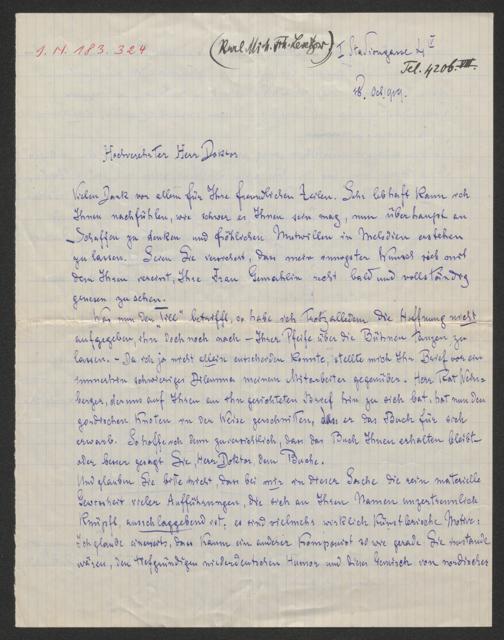 J.N. 183.324
(Karl Mich. Frh. Levetzow)
I Stadiongasse
Tel. 4206 VIII.
18. Oct. 919.
Hochverehrter Herr Doktor
Vielen Dank vor allem für Ihre freundlichen Zeilen. Sehr lebhaft kann ich
Ihnen nachfühlen, wie schwer es Ihnen sein mag, nun überhaupt an
Schaffen zu denken und fröhlichen Mutwillen in Melodien erstehen
zu lassen. Seien Sie versichert, dass mein innigster Wunsch sich mit
dem Ihrem vereint, Ihre Frau Gemahlin recht bald und vollständig
genesen zu sehen.
Was nun den "Till" betrifft, so habe ich trotzalledem die Hoffnung nicht
aufgegeben, ihn doch noch nach – Ihrer Pfeife über die Bühnen tanzen zu
lassen. – Da ich ja nicht allein entscheiden konnte, stellte mich Ihr Brief vor ein
immerhin schwieriges Dilemma meinem Mitarbeiter gegenüber. Herr Rat
berger, der mich auf Ihren an ihn gerichteten Brief hin zu sich bat, hat nun den
gordischen Knoten in der Weise zerschnitten, dass er das Buch für sich
erwarb. So hoffe ich denn zuversichtlich, dass das Buch Ihnen erhalten bleibt –
oder besser gesagt Sie, Herr Doktor, dem Buche.
Und glauben Sie bitte nicht dass bei mir in dieser Sache die rein materielle
Gewissheit vieler Aufführungen, die sich an Ihren Namen unzertrennlich
knüpft, ausschlaggebend ist; es sind vielmehr wirklich künstlerische Motive:
Ich glaube einerseits, dass kaum ein anderer Komponist so wie gerade Sie imstande
wären, den tiefgründigen niederdeutschen Humor und dieses Gemisch von nordischer